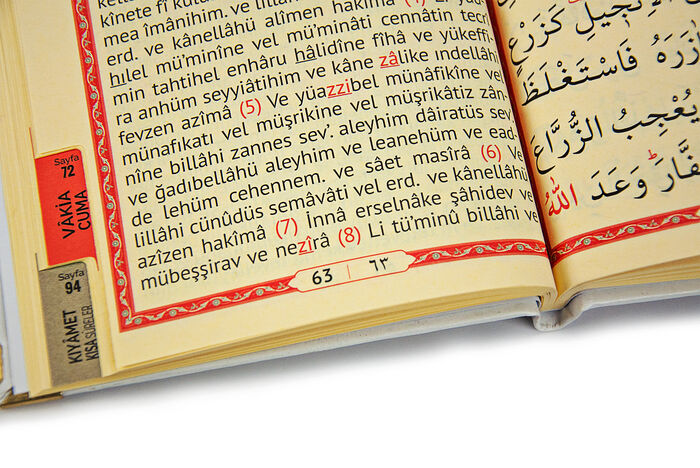 kînete fî kulûbil
mea îmânihim. ve lillâhi
erd. ve kânellâhü alîmen hakîmâ (4) Li yüd
hilel mü'minîne vel mü'minâti cennâtin tecrî
min tahtihel enhâru hâlidîne fîhâ ve yükeffi
ra anhüm seyyiâtihim ve kâne zâlike ındellâhi
fevzen azîmâ (5) Ve yüazzibel münâfikîne vel
münafıkatı vel müşrikîne vel müşrikâtiz zân
nîne billâhi zannes sev'. aleyhim dâiratüs sev'
ve ğadıbellâhü aleyhim ve leanehüm ve ead
de lehüm cehennem. ve sâet masîrâ (6) Ve
lillâhi cünûdüs semâvâti vel erd. ve kânellâhü
azîzen hakîmâ (7) İnnâ erselnâke şâhidev ve
mübeşşirav ve nezîrâ (8) Li tü'minû billâhi ve
63 | ٦٣
Sayfa
72
VÂKİA
CUMA
Sayfa
94
KIYÂMET
KISA SÛRELER
الْإِنْجِيلِ كَزَرْعٍ
فَاسْتَغْلَظَ
يُعْجِبُ الزُّرَّاعَ
وَعَدَ اللّٰهُ